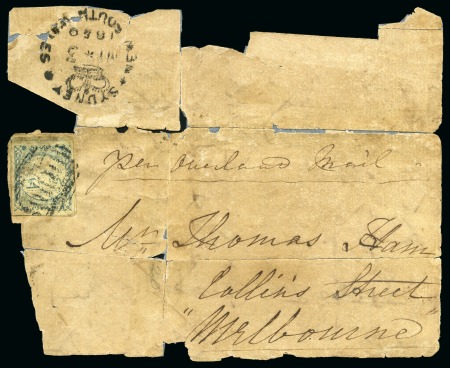 SYDNEY
NEW SOUTH WALES
3
1850
per Overland Mail
Thomas Ham
Collins Street
"Melbourne"